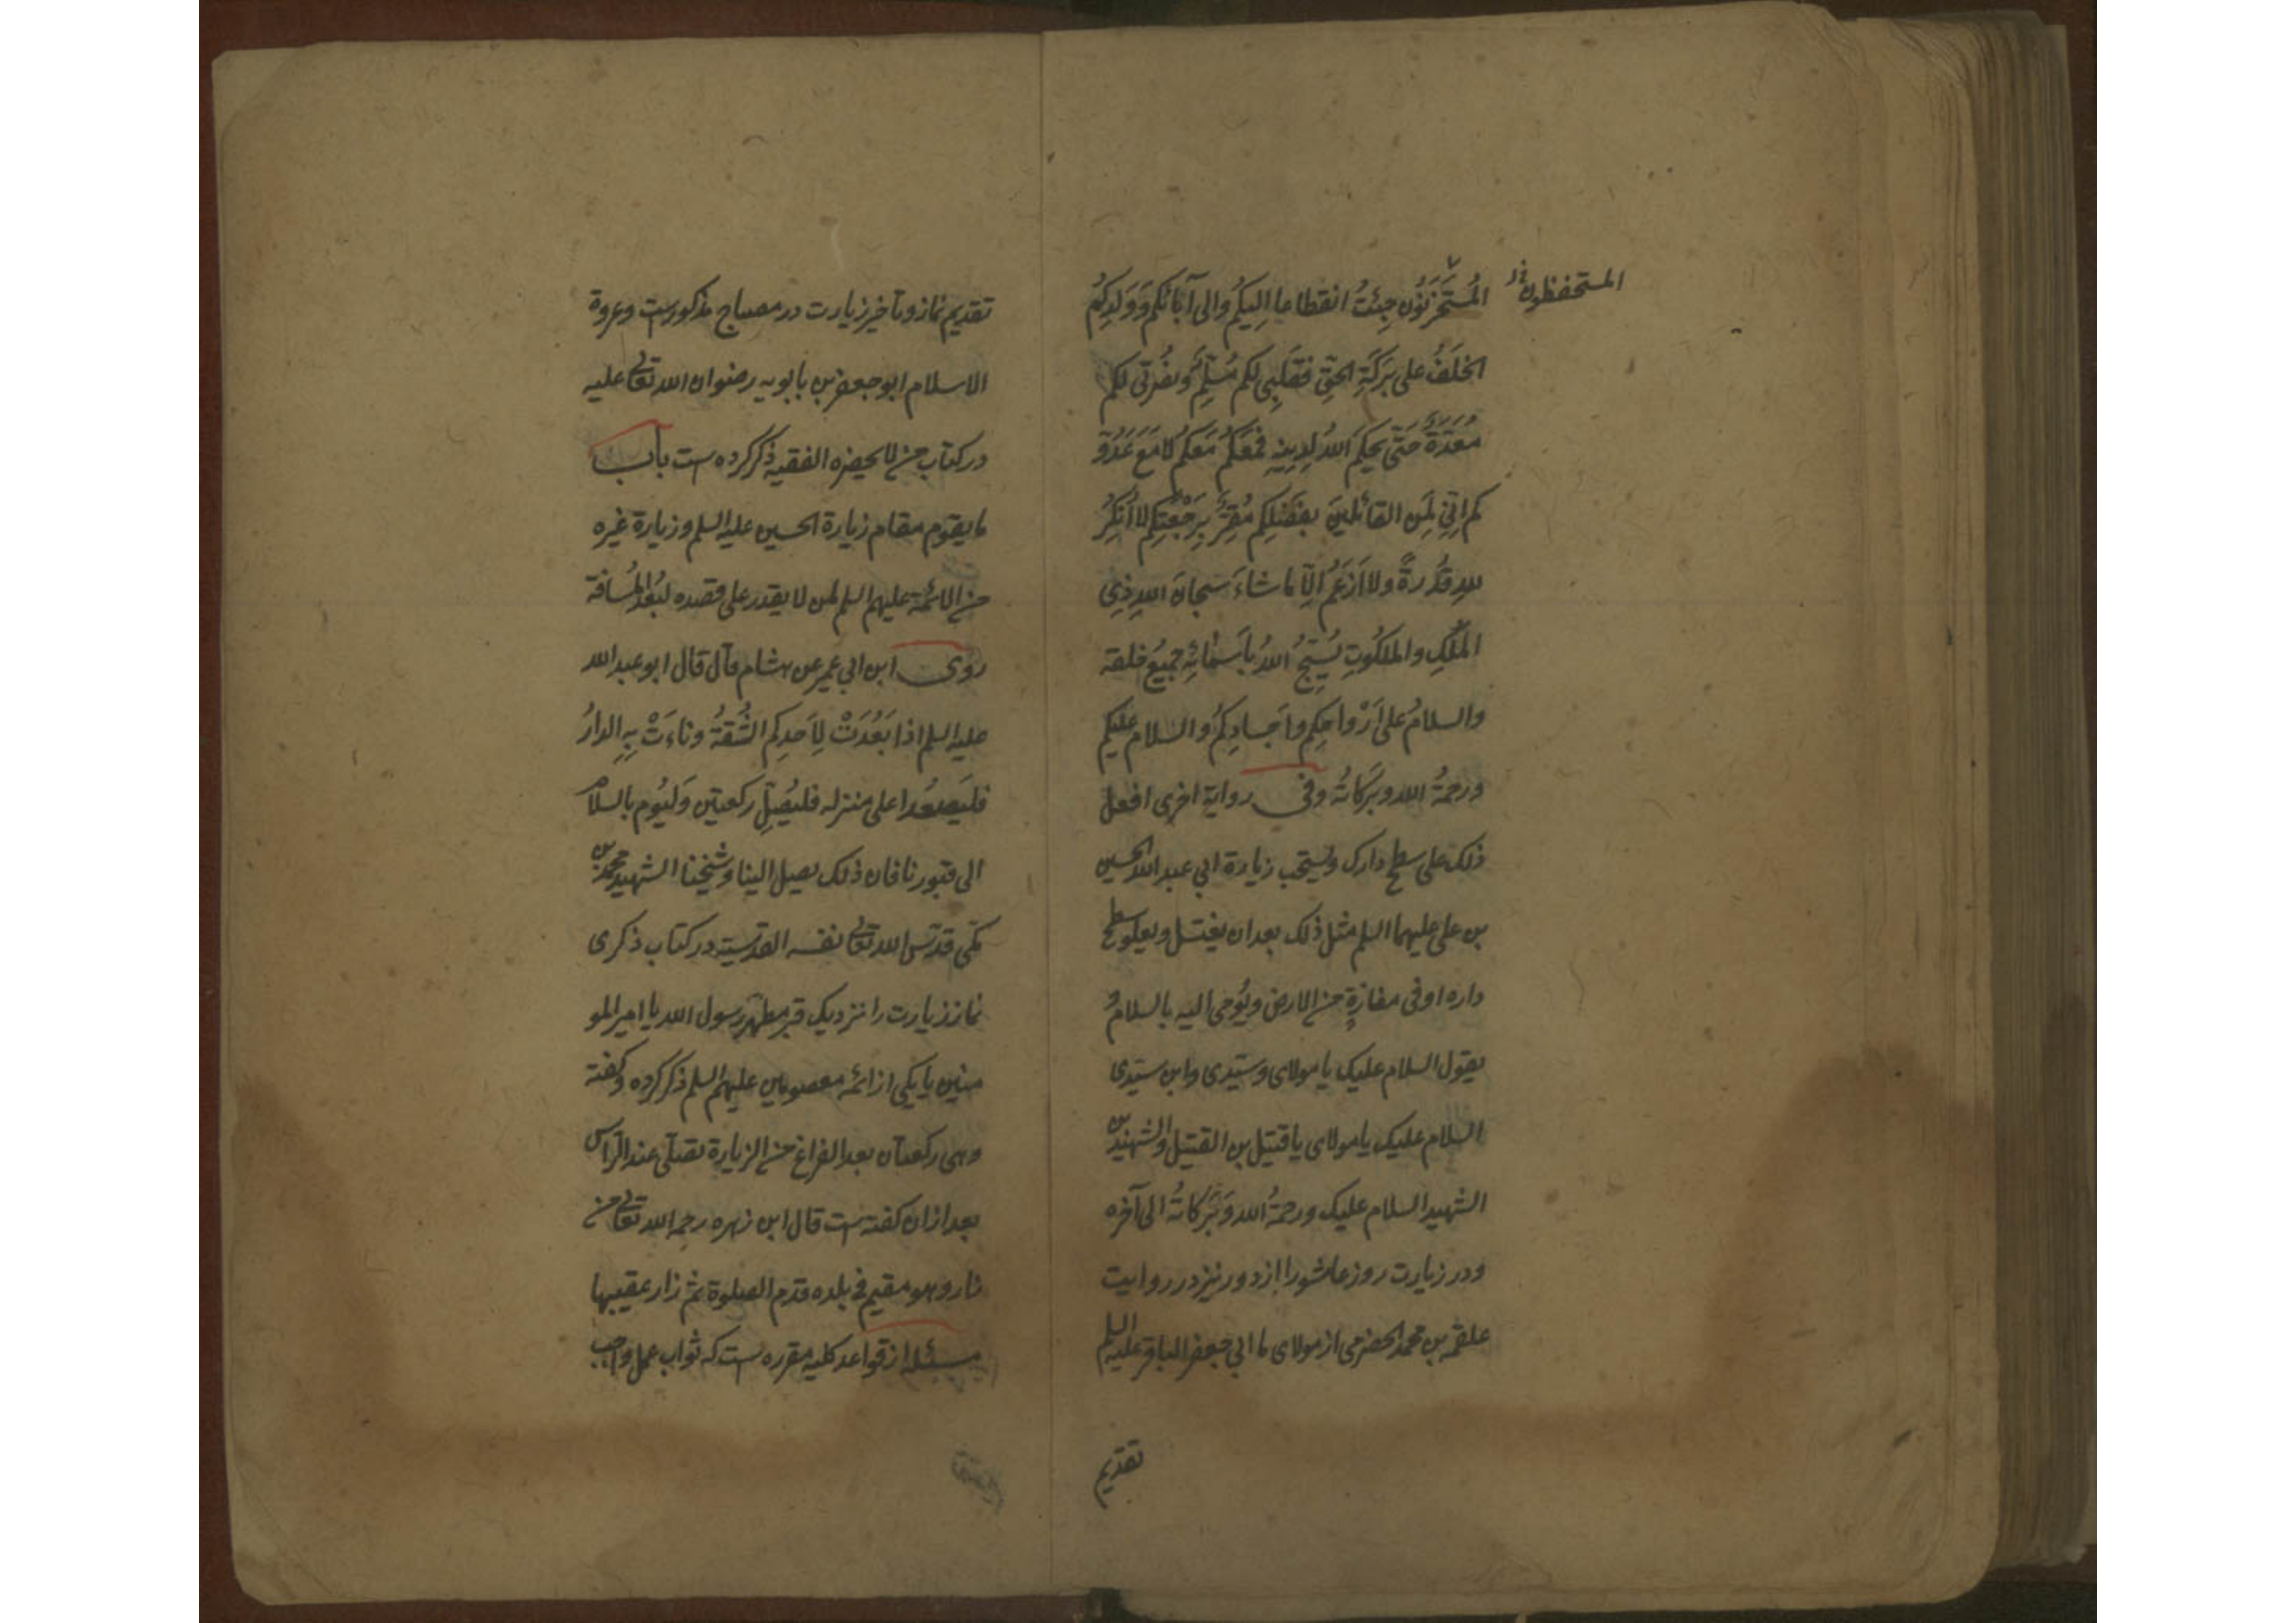 المستحفظون خ
المُسْتَخْزَنُون جِئتُ انقطاعا اِليكُم والى آبائكُم وَوَلَدِكُم
الخَلَفُ على بَرَكَةِ الحَقِّ فقَلبِى لكم مُسَلِّمٌ ونُصْرَتى لكم
مُعَدَّةٌ حَتّى يَحكُمَ اللهُ لدِينِهِ فمَعَكُم مَعَكُم لا مَعَ عَدُوِّ
كم اِنّى لَمِنَ القائلينَ بفَضْلِكم مُقِرٌّ بِرَجْعَتِكم لا اُنكِرُ
للهِ قُدْرةً ولا اَزعَمُ اِلّا ما شاءَ سبحانَ اللهِ ذِى
المُلكِ والملكُوتِ يُسَبِّحُ اللهَ بأَسمائِهِ جميعُ خلقه
والسلامُ على اَرْواحِكم واَجسادِكُم والسلام عليكم
ورحمةُ الله وبَرَكاتُه وفى رواية اخرى افعل
ذلك على سطح دارك ويستحب زيارة ابي عبدالله الحسين
بن على عليهما السلم مثل ذلك بعد ان يغتسل ويعلو سطح
داره او فى مفازةٍ من الارض ويُومى اليه بالسلامُ
يقول السلام عليك يا مولاى وسيّدى وابن سيّدى
السلام عليك يا مولاى يا قتيل بن القتيل والشهيد بن
الشهيد السلام عليك ورحمةُ الله وَبَرَكاتُه الى آخره
ودر زيارت روز عاشورا از دور نيز در روايت
علقمه بن محمد الحضرمى از مولاى ما ابي جعفر الباقر عليه السلم
تقديم
تقديم نماز وتأخير زيارت در مصباح مذكورست وعروة
الاسلام ابو جعفر بن بابويه رضوان الله تعالى عليه
در كتاب من لا يحضره الفقيه ذكر كرده ست باب
ما يقوم مقام زيارة الحسين عليه السلم وزيارة غيره
من الائمة عليهم السلم لمن لا يقدر على قصده لبُعد المُسافة
روى ابن ابي عمير عن هشام قال قال ابو عبدالله
عليه السلم اذا بَعُدَتْ لِاَحدِكم الشُّقةُ وناءَتْ بِهِ الدارُ
فليَصعُد اعلى منزله فليُصَلِّ ركعتين وَليُوم بالسلام
الى قبورنا فان ذلك يصل الينا وشيخنا الشهيد محمد بن
مكّى قدّس الله تعالى نفسه القدّسيّة در كتاب ذكرى
نماز زيارت را نزديك قبر مطهّر رسول الله يا امير المو
منين يا يكى از ائمه معصومين عليهم السلم ذكر كرده وكفته
وهى ركعتان بعد الفراغ من الزيارة تصلّى عند الرّاس
بعد ازان كفته ست قال ابن زهره رحمه الله تعالى من
زار وهو مقيم فى بلده قدم الصلوة ثم زار عقيبها
مسئله از قواعد كليه مقرره ست كه ثواب عمل واجب